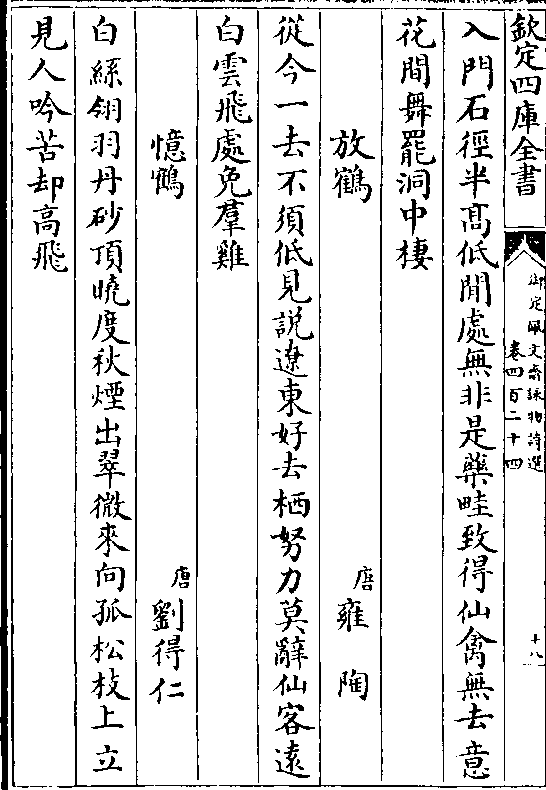 欽定四庫全書
御定佩文齋詠物詩選
卷四百二十四
十八
入門石徑半髙低閒處無非是藥畦致得仙禽無去意
花間舞罷洞中棲
放鶴
唐雍陶
從今一去不須低見説遼東好去栖努力莫辭仙客逺
白雲飛處免羣雞
憶鶴
唐劉得仁
白絲翎羽丹砂頂曉度秋煙出翠微來向孤松枝上立
見人吟苦却高飛